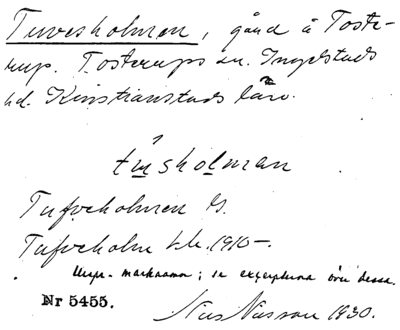 Tuvesholmen, gård å Toste-
rup. Tosterups sn. Ingelstads
hd. Kristianstads län.
tuesholman
Tufveholmen G.
Tufveholm 1910-.
Urspr. marknamn; se excerpterna över dessa.
Nr 5455.
Nils Nilsson 1930.